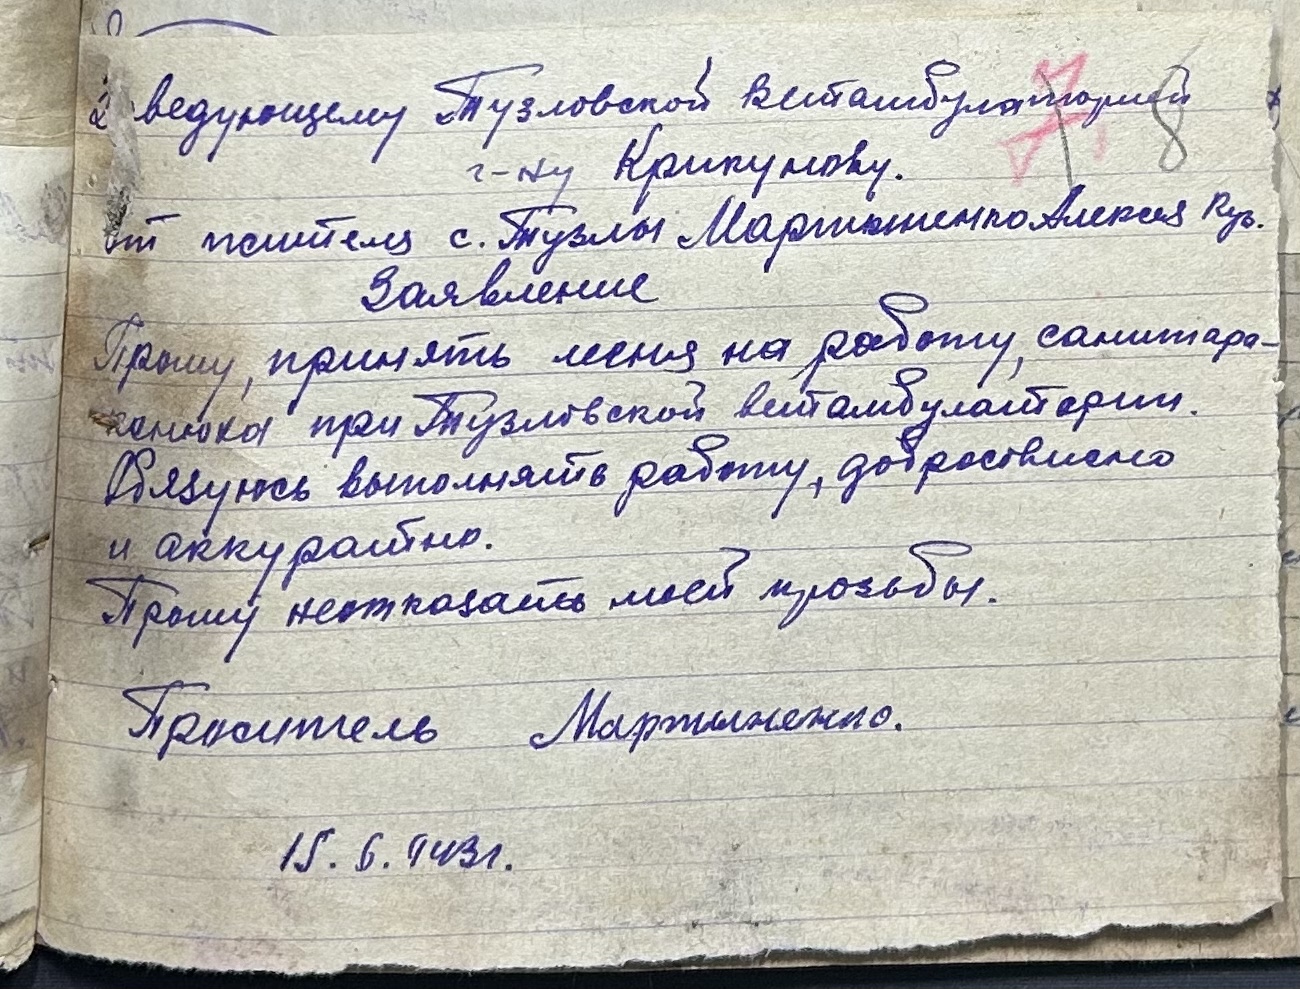 Заведующему Тузловской Ветамбулаторией
г-ну Крикунову.
от жителя с. Тузлы Мартыненко Алексея Куз.
Заявление
Прошу, принять меня на работу, санитара-
конюха при Тузловской ветамбулатории.
Обязуюсь выполнять работу, добросовисно
и аккуратно.
Прошу неотказать моей прозьбы.
Проситель Мартыненко.
15. 6. 943 г.
8